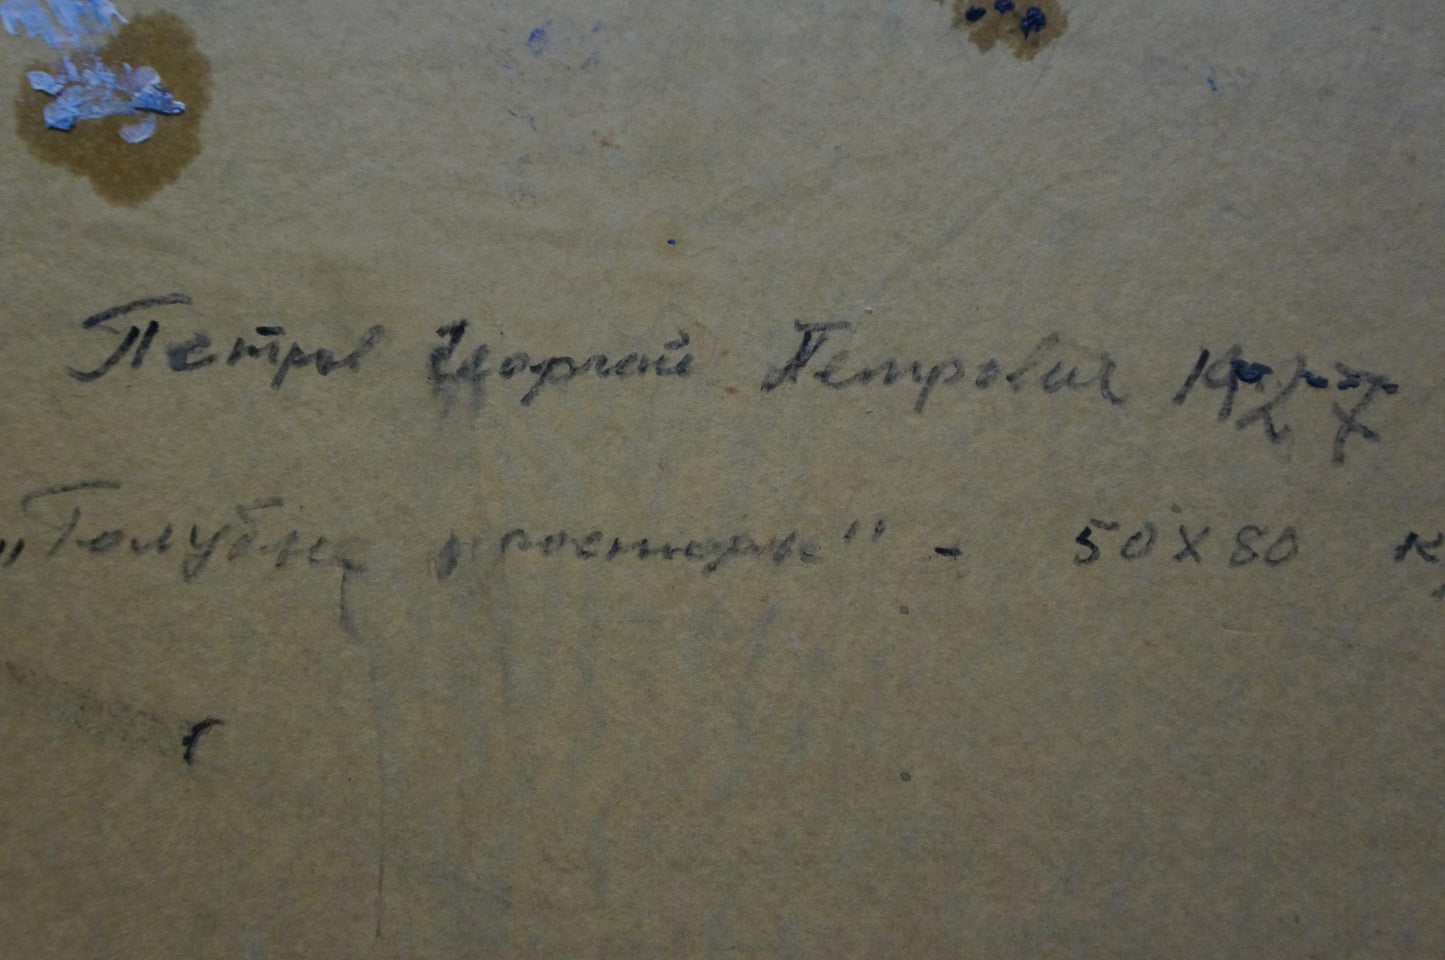 Петров Георгий Петрович
„Голубые просторы" - 50х80 к